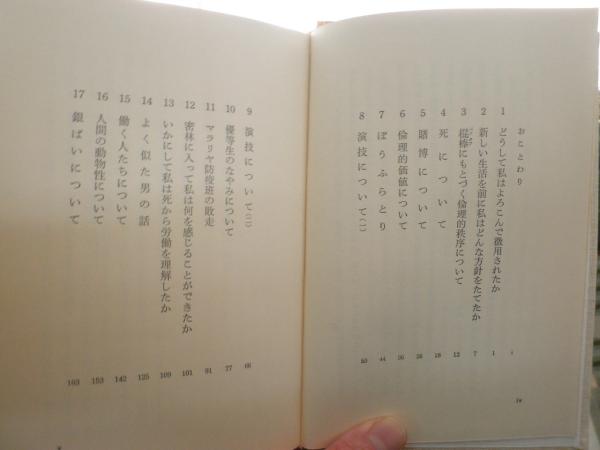 おことわり i
1 どうして私はよろこんで徴用されたか 1
2 新しい生活を前に私はどんな方針をたてたか 7
3 棍棒にもとづく倫理的秩序について 12
4 死について 18
5 賭博について 26
6 倫理的価値について 36
7 ぼうふらとり 44
8 演技について(一)
iv
9 演技について(二) 68
10 優等生のなやみについて 77
11 マラリヤ防疫班の敗走 91
12 密林に入って私は何を感じることができたか 101
13 いかにして私は死から労働を理解したか 109
14 よく似た男の話 125
15 働く人たちについて 142
16 人間の動物性について 153
17 銀ばいについて 163
v